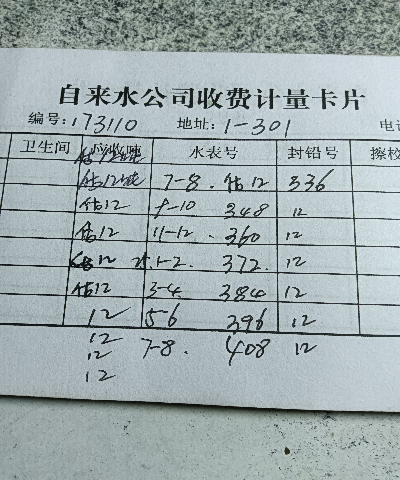 自来水公司收费计量卡片
编号:173110 地址:1-301 电
卫生间 应收吨 水表号 封铅号 擦校
估12吨
估12吨 7-8. 估12 336
估12 9-10 348 12
估12 11-12. 360 12
估12 25.1-2. 372. 12
估12 3-4 384 12
12 5-6 396 12
12 7-8. 408 12
12
12